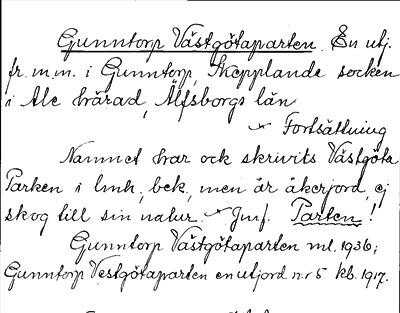 Gunntorp Västgötaparten. En utj.
fr. m.m. i Gunntorp, Skepplanda socken
i Ale härad, Älfsborgs län
Fortsättning
Namnet har ock skrivits Västgöta
Parken i bek, men är åkerjord, ej
skog till sin natur. Jmf. Parten!
Gunntorp Västgötaparten ml. 1936;
Gunntorp Vestgötaparten en utjord n:r 5 kb. 1917.